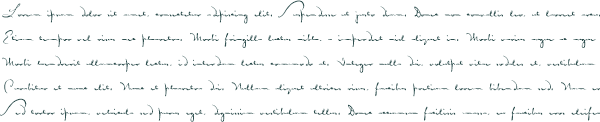 Lorem ipsum dolor sit amet, consectetur adipiscing elit. Suspendisse et justo diam. Donec non convallis leo, et laoreet
Etiam tempor vel eros nec pharetra. Morbi fringilla luctus nibh, imperdiet nisl aliquet in. Morbi
Morbi hendrerit ullamcorper luctus, id interdum lectus commodo et. Integer nulla dui, volutpat vitae sodales et, vestibulum
Curabitur et nunc elit. Nunc et pharetra dui. Nullam aliquet ultricies eros, facilisis pretium lorem bibendum sed. Nam
Sed tortor ipsum, vehicula sed purus eget, dignissim vestibulum tellus. Donec accumsan facilisis massa, ac facilisis